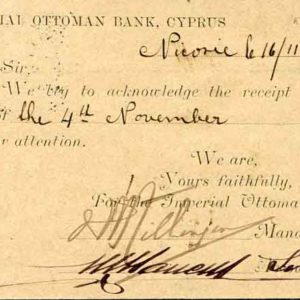 IAL OTTOMAN BANK, CYPRUS
Nicosie le 16/11
Sir,
We beg to acknowledge the receipt
of the 4th November
r attention.
We are,
Yours faithfully,
For the Imperial Ottoma
Mana